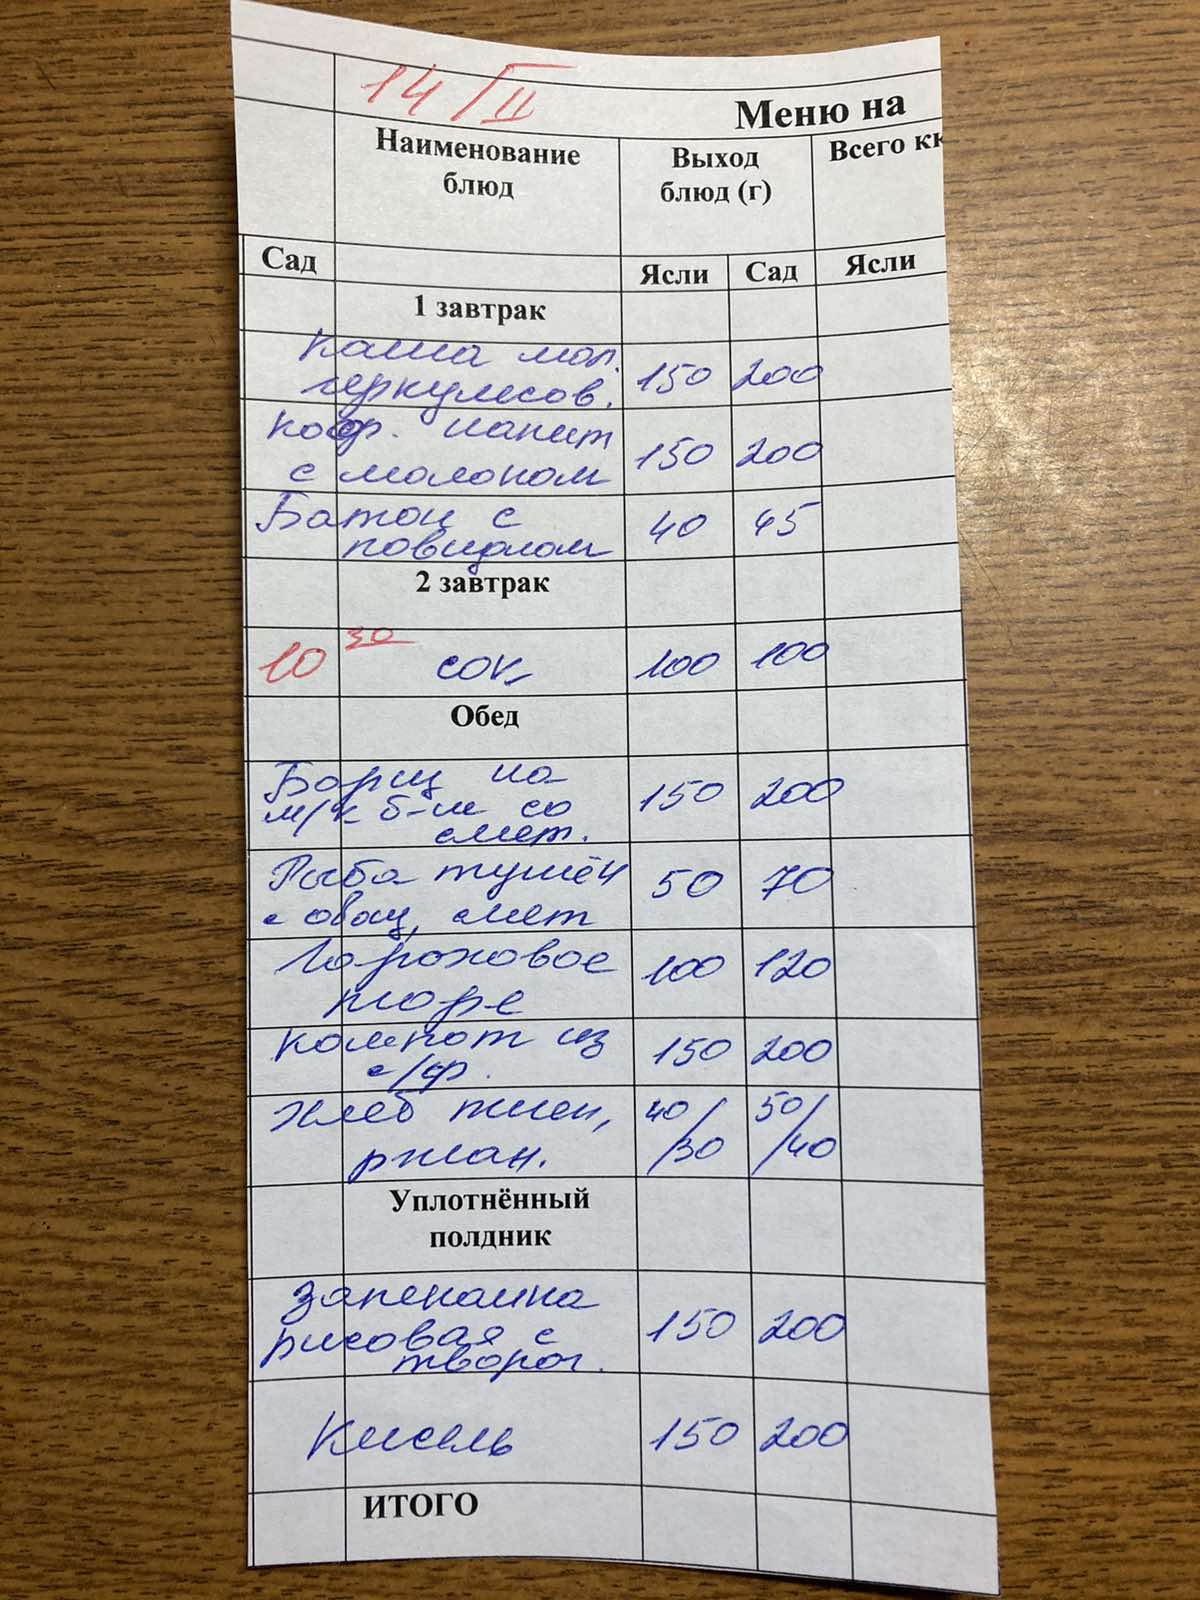 14/II
Меню на
Наименование блюд
Выход блюд (г)
Всего кк
Сад
Ясли
Сад
Ясли
1 завтрак
Каша мол.
геркулесов.
150 200
Коф. напит
с молоком
150 200
Батон с
повидлом
40 45
2 завтрак
10 30 сок 100 100
Обед
Борщ на
м/к б-не со
смет.
150 200
Рыба тушён
с овощ, смет
50 70
Гороховое
пюре
100 120
Компот из
с/ф.
150 200
Хлеб пшен,
ржан.
40/30 50/40
Уплотнённый
полдник
Запеканка
рисовая с
творог.
150 200
Кисель 150 200
ИТОГО